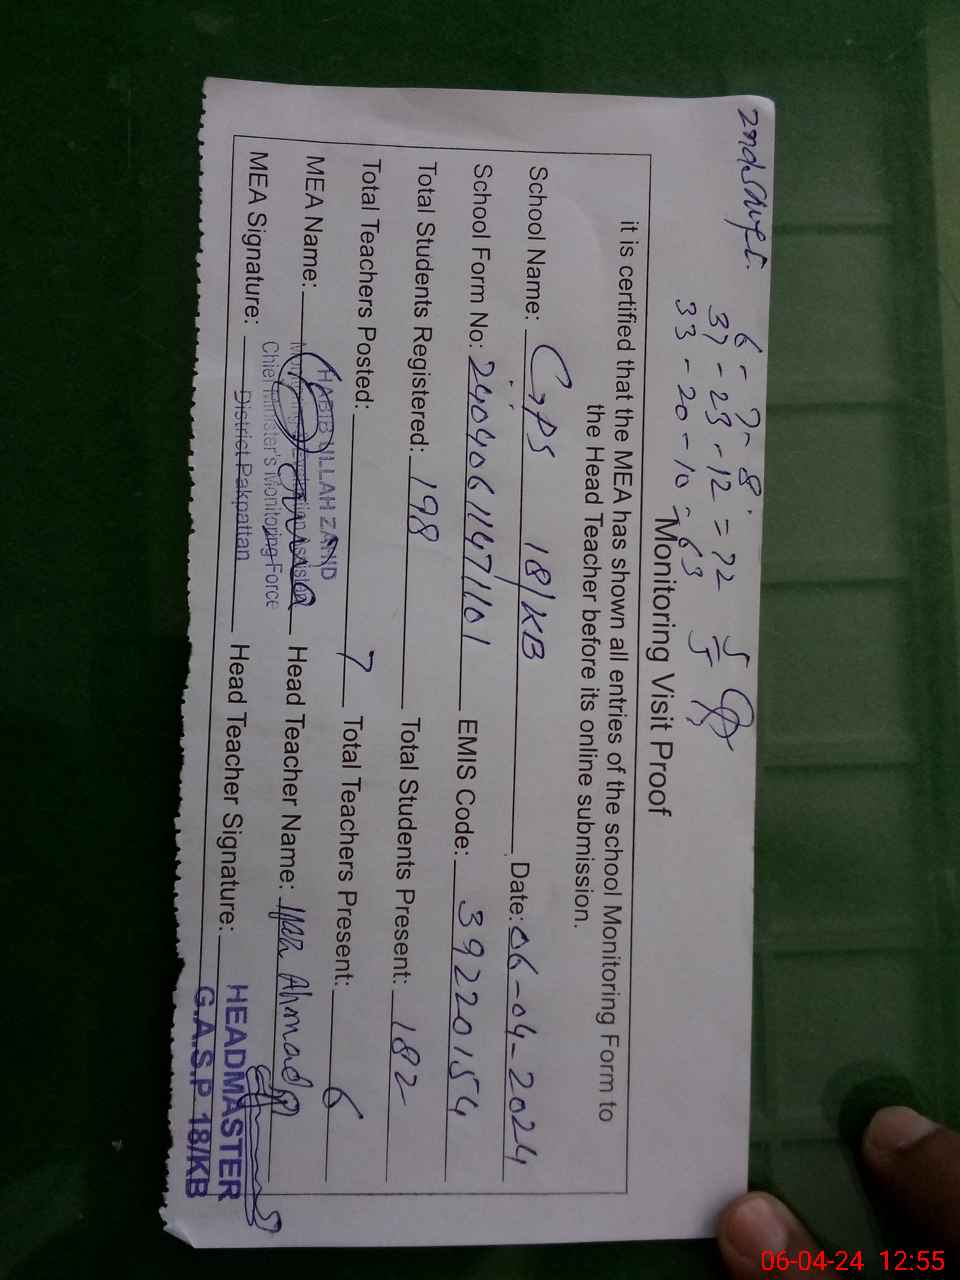 6 - 7 - 8
37 - 23 - 12 = 72 5
33 - 20 - 10 = 63 5
Monitoring Visit Proof
it is certified that the MEA has shown all entries of the school Monitoring Form to
the Head Teacher before its online submission.
School Name: GPS 18/KB Date: 06-04-2024
School Form No: 24040611471101 EMIS Code: 39220154
Total Students Registered: 198 Total Students Present: 182
Total Teachers Posted: 7 Total Teachers Present: 6
HABIB ULLAH ZAND
MEA Name: Head Teacher Name: Ahmad
Chief Minister's Monitoring Force
MEA Signature: District Pakpattan Head Teacher Signature:
HEADMASTER
G.A.S.P 18/KB
06-04-24 12:55